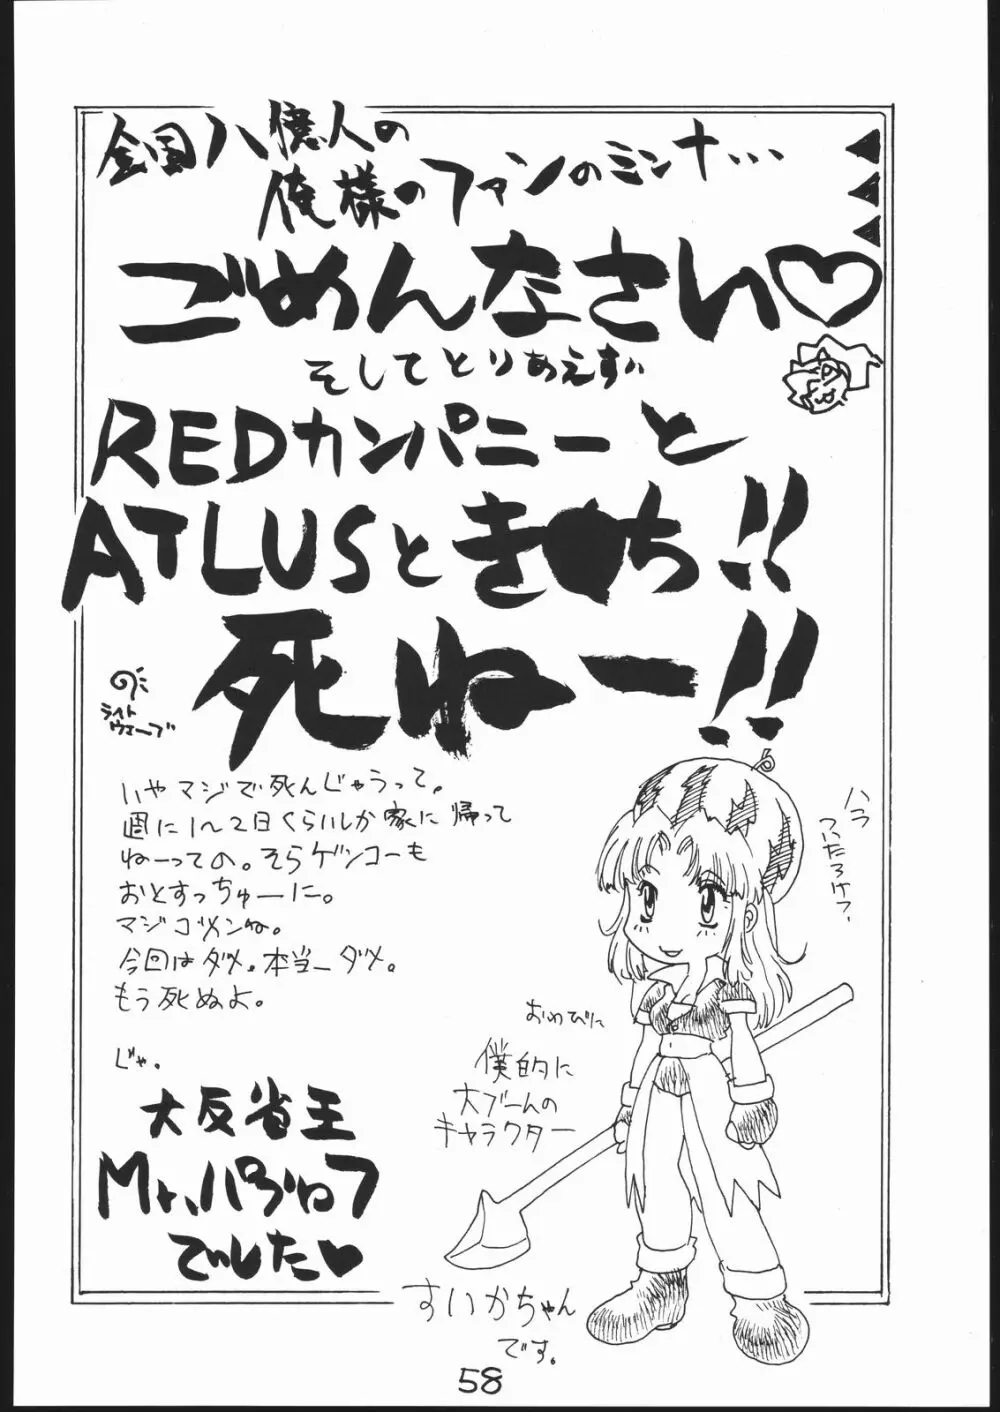 全国八億人の
俺様のファンのミンナ…
ごめんなさい♡
そしてとりあえず
REDカンパニーと
ATLUSとき●ち!!
死ねー!!
ライト
ウェーブ
いやマジで死んじゃうって。
週に1〜2日くらいしか家に帰って
ねーっての。そらゲンコーも
おとすっちゅーに。
マジゴメンね。
今回はダメ。本当ーダメ。
もう死ぬよ。
じゃ。
大反省王
Mr.パジェロフ
でした♥
ハラ
おわびに
僕的に
大ブームの
キャラクター
すいかちゃん
です。
58